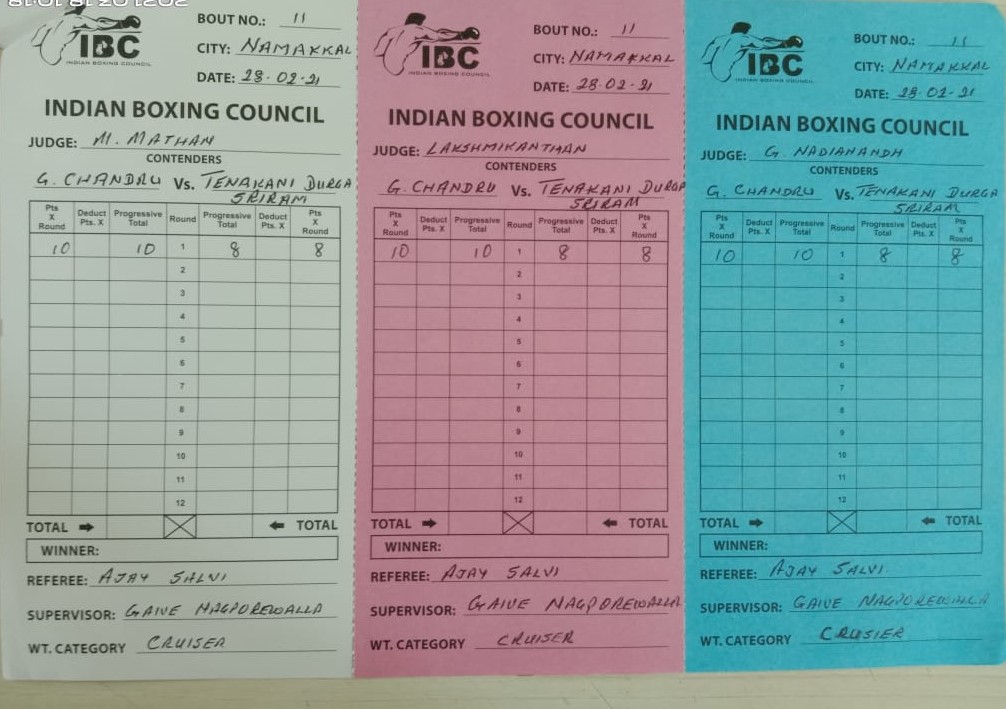 BOUT NO.: 11
IBC
INDIAN BOXING COUNCIL
CITY: NAMAKKAL
DATE: 28-02-21
INDIAN BOXING COUNCIL
JUDGE: M. MATHAN
CONTENDERS
G. CHANDRU Vs. TENAKANI DURGA
SRIRAM
Pts X Round Deduct Pts. X Progressive Total Round Progressive Total Deduct Pts. X Pts X Round
10 10 1 8 8
2
3
4
5
6
7
8
9
10
11
12
TOTAL TOTAL
WINNER:
REFEREE: AJAY SALVI
SUPERVISOR: GAIVE NAGPOREWALLA
WT. CATEGORY CRUISER
BOUT NO.: 11
IBC
INDIAN BOXING COUNCIL
CITY: NAMAKKAL
DATE: 28-02-21
INDIAN BOXING COUNCIL
JUDGE: LAKSHMIKANTHAN
CONTENDERS
G. CHANDRU Vs. TENAKANI DURGA
SRIRAM
Pts X Round Deduct Pts. X Progressive Total Round Progressive Total Deduct Pts. X Pts X Round
10 10 1 8 8
2
3
4
5
6
7
8
9
10
11
12
TOTAL TOTAL
WINNER:
REFEREE: AJAY SALVI
SUPERVISOR: GAIVE NAGPOREWALLA
WT. CATEGORY CRUISER
BOUT NO.: 11
IBC
INDIAN BOXING COUNCIL
CITY: NAMAKKAL
DATE: 28-02-21
INDIAN BOXING COUNCIL
JUDGE: G. NADIANANDH
CONTENDERS
G. CHANDRU Vs. TENAKANI DURGA
SRIRAM
Pts X Round Deduct Pts. X Progressive Total Round Progressive Total Deduct Pts. X Pts X Round
10 10 1 8 8
2
3
4
5
6
7
8
9
10
11
12
TOTAL TOTAL
WINNER:
REFEREE: AJAY SALVI
SUPERVISOR: GAIVE NAGPOREWALLA
WT. CATEGORY CRUSIER